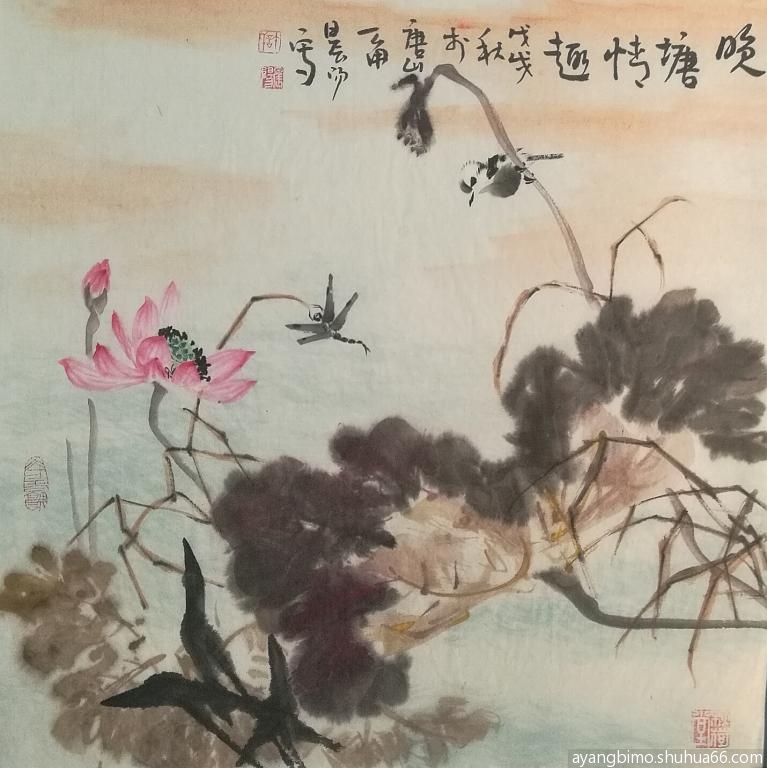 晚塘情趣
戊戌
秋
於
唐山
晨阳
写
ayangbimo.shuhua66.com